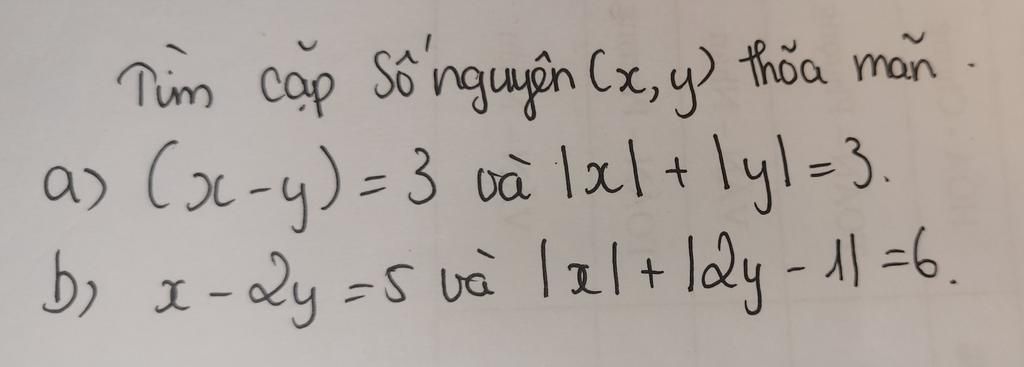 Tìm cặp số nguyên (x, y) thõa mãn.
a) (x - y) = 3 và |x| + |y| = 3.
b) x - 2y = 5 và |x| + |2y - 1| = 6.